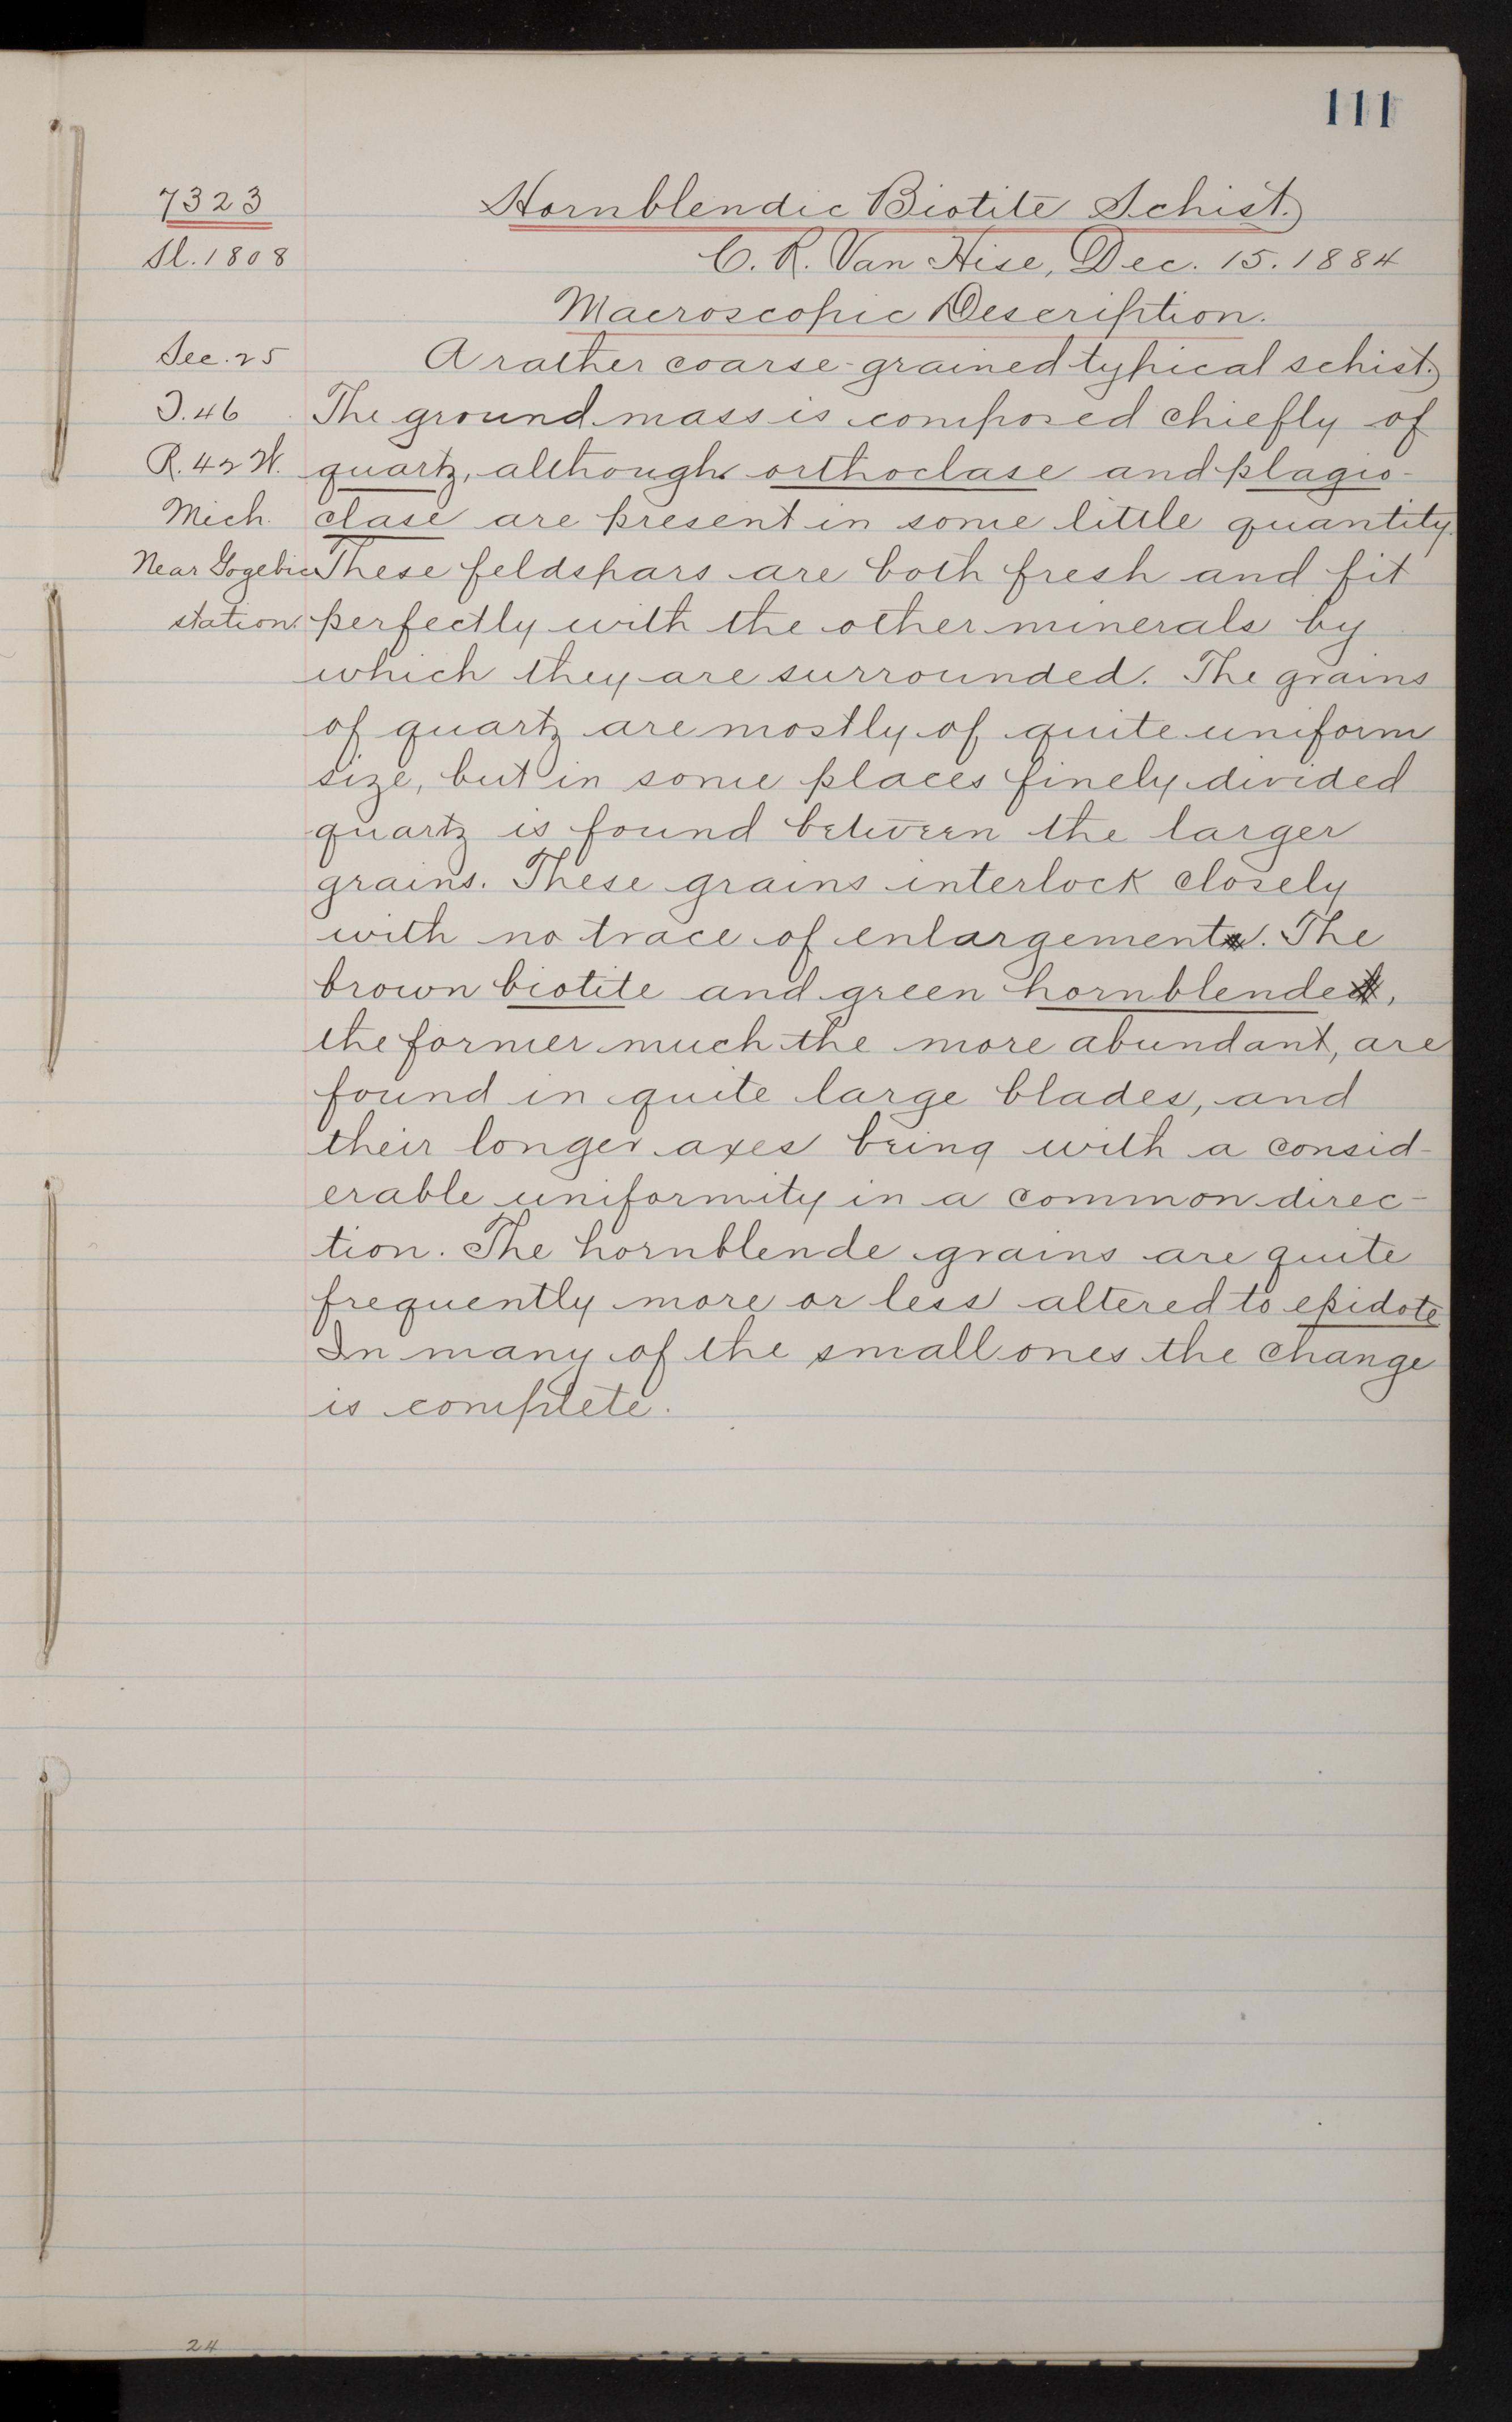 111
7323 Hornblendic Biotite Schist.
Sl. 1808 C. R. Van Hise, Dec. 15. 1884
Macroscopic Description.
Sec. 25 A rather coarse-grained typical schist.
T. 46 The ground mass is composed chiefly of
R. 42 W. quartz, although orthoclase and plagio-
Mich. clase are present in some little quantity.
Near Gogebic These feldspars are both fresh and fit
station. perfectly with the other minerals by
which they are surrounded. The grains
of quartz are mostly of quite uniform
size, but in some places finely divided
quartz is found between the larger
grains. These grains interlock closely
with no trace of enlargement. The
brown biotite and green hornblende,
the former much the more abundant, are
found in quite large blades, and
their longer axes being with a consid-
erable uniformity in a common direc-
tion. The hornblende grains are quite
frequently more or less altered to epidote
In many of the small ones the change
is complete.
24